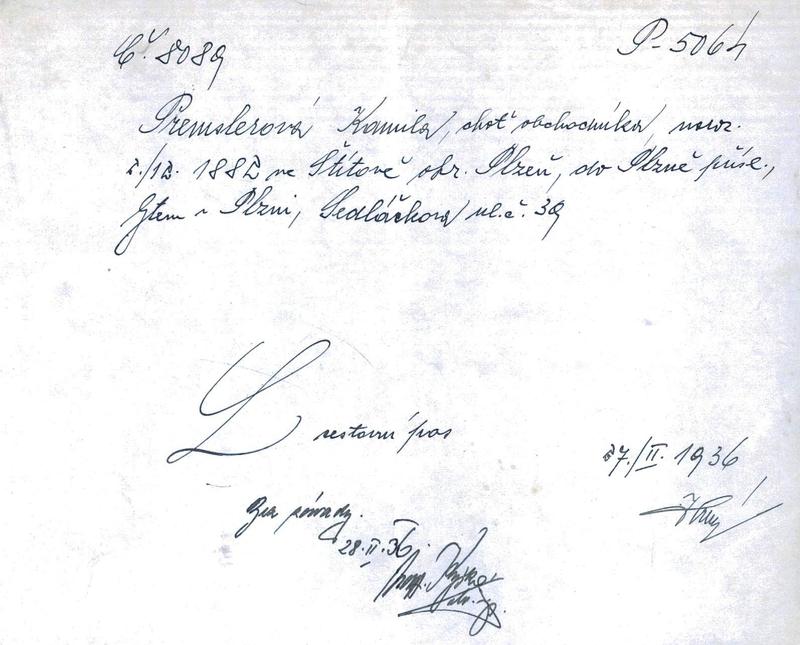 Č. 8089
P-5064
Přemslerová Kamila, choť obchodníka, naroz.
2./12. 1882 ve Štítově okr. Plzeň, do Plzně přísl.,
bytem v Plzni, Sedláčkova ul. č. 39
cestovní pas
27./II. 1936
Bez závady.
28.II.36.